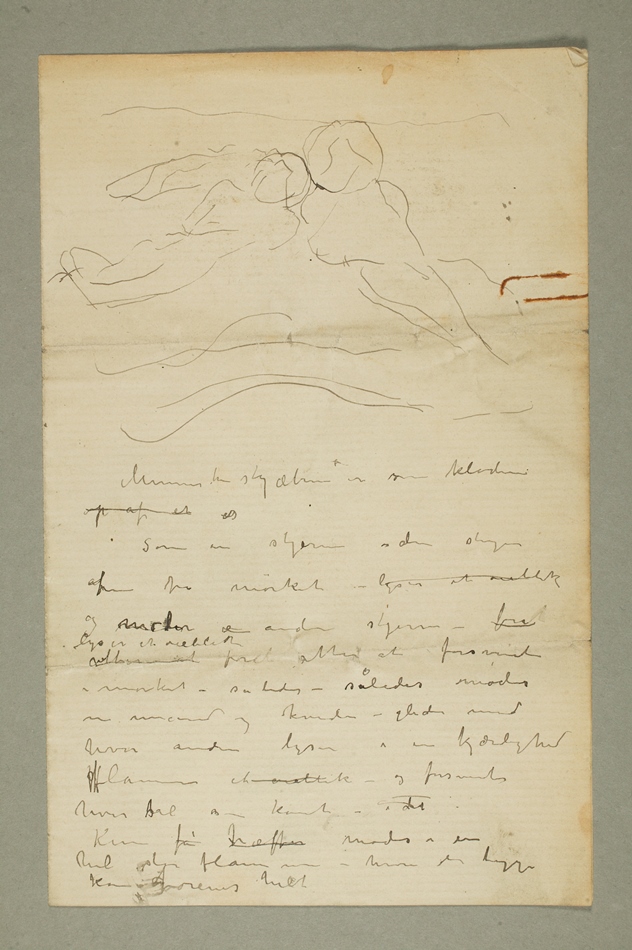 Menneskenes skjæbner er som kloderne
op af et as
Som en stjerne der stiger
af fra mørket – lyser et øieblik
og møder en anden stjerne – for
lyser et øieblik
for atter at forsvinde
i mørket – saledes – således mødes
en mand og kvinde – glider mod
hverandre lyser i en kjærligheds
flamme et øieblik – og forsvinder
hver til sin kant –
Kun få træffes mødes i en
hel stor flamme – hvor de begge
kan forenes helt